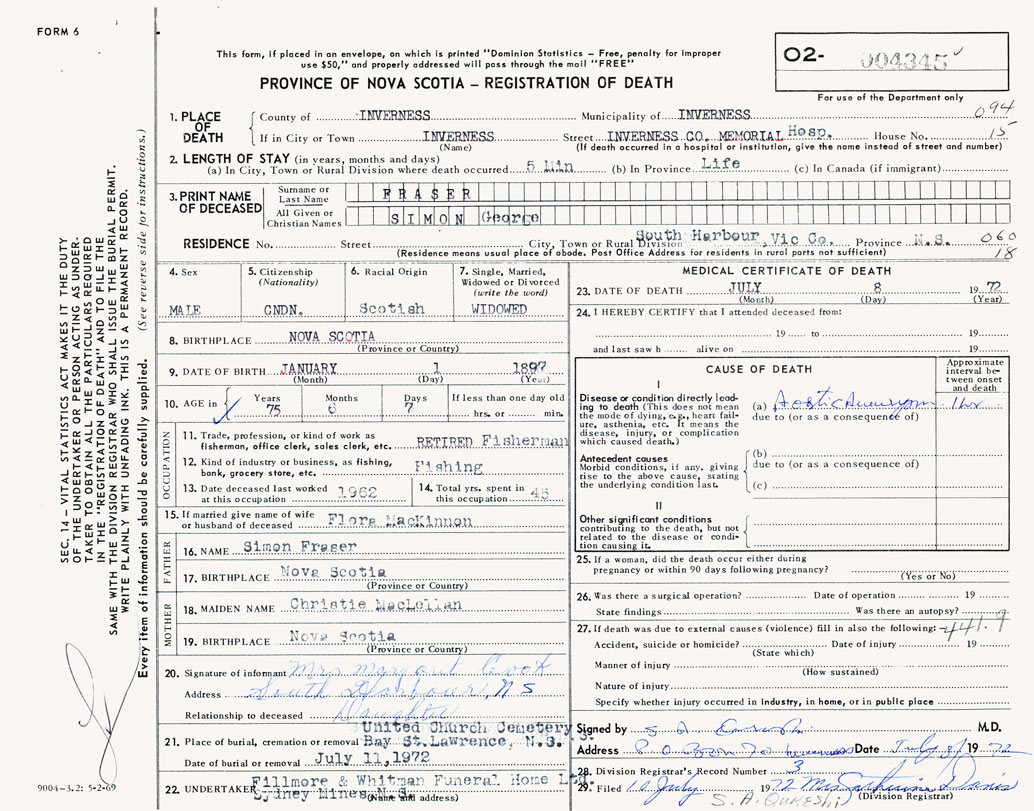 FORM 6
This form, if placed in an envelope, on which is printed "Dominion Statistics – Free, penalty for improper
use $50," and properly addressed will pass through the mail "FREE"
PROVINCE OF NOVA SCOTIA – REGISTRATION OF DEATH
O2- 004345
For use of the Department only
1. PLACE OF DEATH
County of INVERNESS Municipality of INVERNESS 094
If in City or Town INVERNESS Street INVERNESS CO. MEMORIAL Hosp. House No. 15
(Name) (If death occurred in a hospital or institution, give the name instead of street and number)
2. LENGTH OF STAY (in years, months and days)
(a) In City, Town or Rural Division where death occurred 5 Min (b) In Province Life (c) In Canada (if immigrant)
3. PRINT NAME OF DECEASED
Surname or Last Name FRASER
All Given or Christian Names SIMON George
RESIDENCE No. Street City, Town or Rural Division South Harbour, Vic Co. Province N.S. 060
(Residence means usual place of abode. Post Office Address for residents in rural parts not sufficient) 18
4. Sex
MALE
5. Citizenship (Nationality)
CNDN.
6. Racial Origin
Scotish
7. Single, Married, Widowed or Divorced (write the word)
WIDOWED
8. BIRTHPLACE NOVA SCOTIA
(Province or Country)
9. DATE OF BIRTH JANUARY 1 1897
(Month) (Day) (Year)
10. AGE in Years Months Days If less than one day old
75 6 7 hrs. or min.
OCCUPATION
11. Trade, profession, or kind of work as fisherman, office clerk, sales clerk, etc. RETIRED Fisherman
12. Kind of industry or business, as fishing, bank, grocery store, etc. Fishing
13. Date deceased last worked at this occupation 1962
14. Total yrs. spent in this occupation 45
15. If married give name of wife or husband of deceased Flora MacKinnon
FATHER
16. NAME Simon Fraser
17. BIRTHPLACE Nova Scotia
(Province or Country)
MOTHER
18. MAIDEN NAME Christie MacLellan
19. BIRTHPLACE Nova Scotia
(Province or Country)
20. Signature of informant Mrs Margaret
Address South Harbour, N S
Relationship to deceased Daughter
21. Place of burial, cremation or removal United Church Cemetery
Bay St. Lawrence, N.S.
Date of burial or removal July 11, 1972
22. UNDERTAKER Fillmore & Whitman Funeral Home Ltd.
Sydney Mines N.S.
(Name and address)
MEDICAL CERTIFICATE OF DEATH
23. DATE OF DEATH JULY 8 19 72
(Month) (Day) (Year)
24. I HEREBY CERTIFY that I attended deceased from:
19 to 19
and last saw h alive on 19
CAUSE OF DEATH
Approximate interval between onset and death
I
Disease or condition directly leading to death (This does not mean the mode of dying, e.g., heart failure, asthenia, etc. It means the disease, injury, or complication which caused death.)
(a) Aortic Aneurysm 1 hr
due to (or as a consequence of)
Antecedent causes
Morbid conditions, if any, giving rise to the above cause, stating the underlying condition last.
(b)
due to (or as a consequence of)
(c)
II
Other significant conditions
contributing to the death, but not related to the disease or condition causing it.
25. If a woman, did the death occur either during
pregnancy or within 90 days following pregnancy?
(Yes or No)
26. Was there a surgical operation? Date of operation 19
State findings Was there an autopsy?
27. If death was due to external causes (violence) fill in also the following: 441.9
Accident, suicide or homicide? Date of injury 19
(State which)
Manner of injury
(How sustained)
Nature of injury
Specify whether injury occurred in Industry, in home, or in public place
Signed by M.D.
Address P.O. Box 70 Inverness Date July 8/ 19 72
28. Division Registrar's Record Number 3
29. Filed 10 July 19 72 Mrs Catherine
S. A. QURESHI (Division Registrar)
SEC. 14 – VITAL STATISTICS ACT MAKES IT THE DUTY
OF THE UNDERTAKER OR PERSON ACTING AS UNDER-
TAKER TO OBTAIN ALL THE PARTICULARS REQUIRED
IN THE "REGISTRATION OF DEATH" AND TO FILE THE
SAME WITH THE DIVISION REGISTRAR WHO SHALL ISSUE THE BURIAL PERMIT.
WRITE PLAINLY WITH UNFADING INK. THIS IS A PERMANENT RECORD.
Every item of information should be carefully supplied. (See reverse side for instructions.)
9004–3.2: 5-2-69